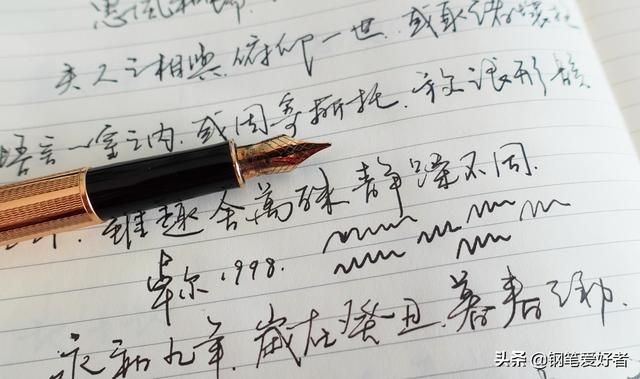 惠风和畅.
夫人之相與.俯仰一世.或取诸懷抱
悟言一室之内.或因寄所托.放浪形骸
之外.雖趣舍萬殊静躁不同.
卓尔1998.
永和九年.歲在癸丑.暮春之初.
头条 @钢笔爱好者